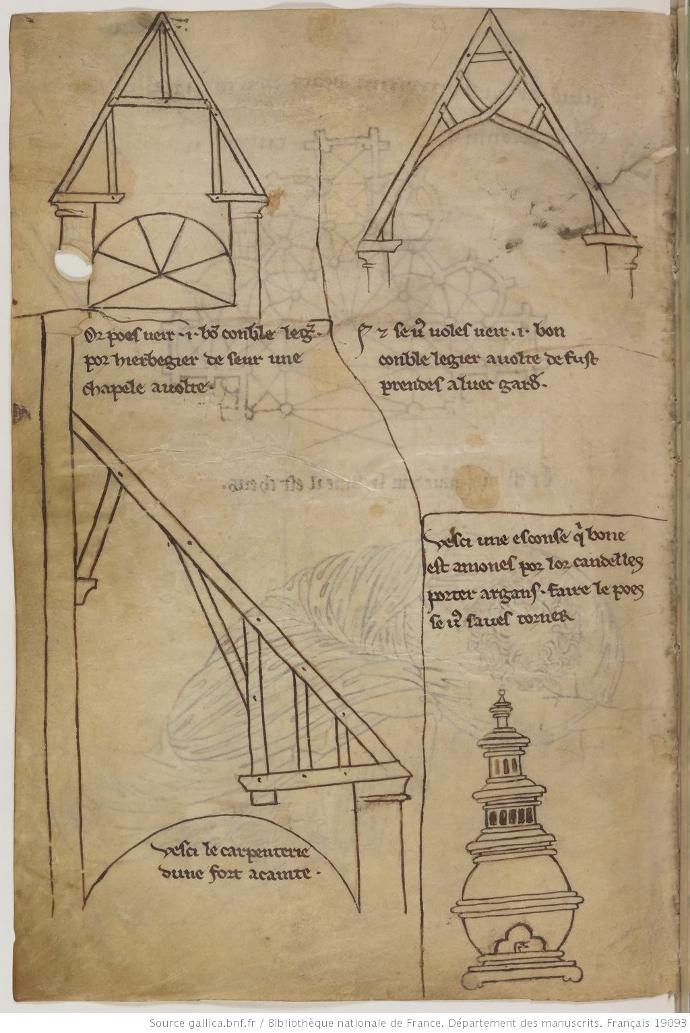 Or poes veir .i. bō conble leg̃.
por hierbegier de seur une
chapele a volte.
⁊ se ũ voles veir .i. bon
conble legier a volte de fust
prendes aluec gard̃.
Vesci une esconse q̃ bone
est a mones por lor candelles
porter argans. faire le poes
se ũ saves torner
Vesci le carpenterie
dune fort acainte.
Source gallica.bnf.fr / Bibliothèque nationale de France. Département des manuscrits. Français 19093